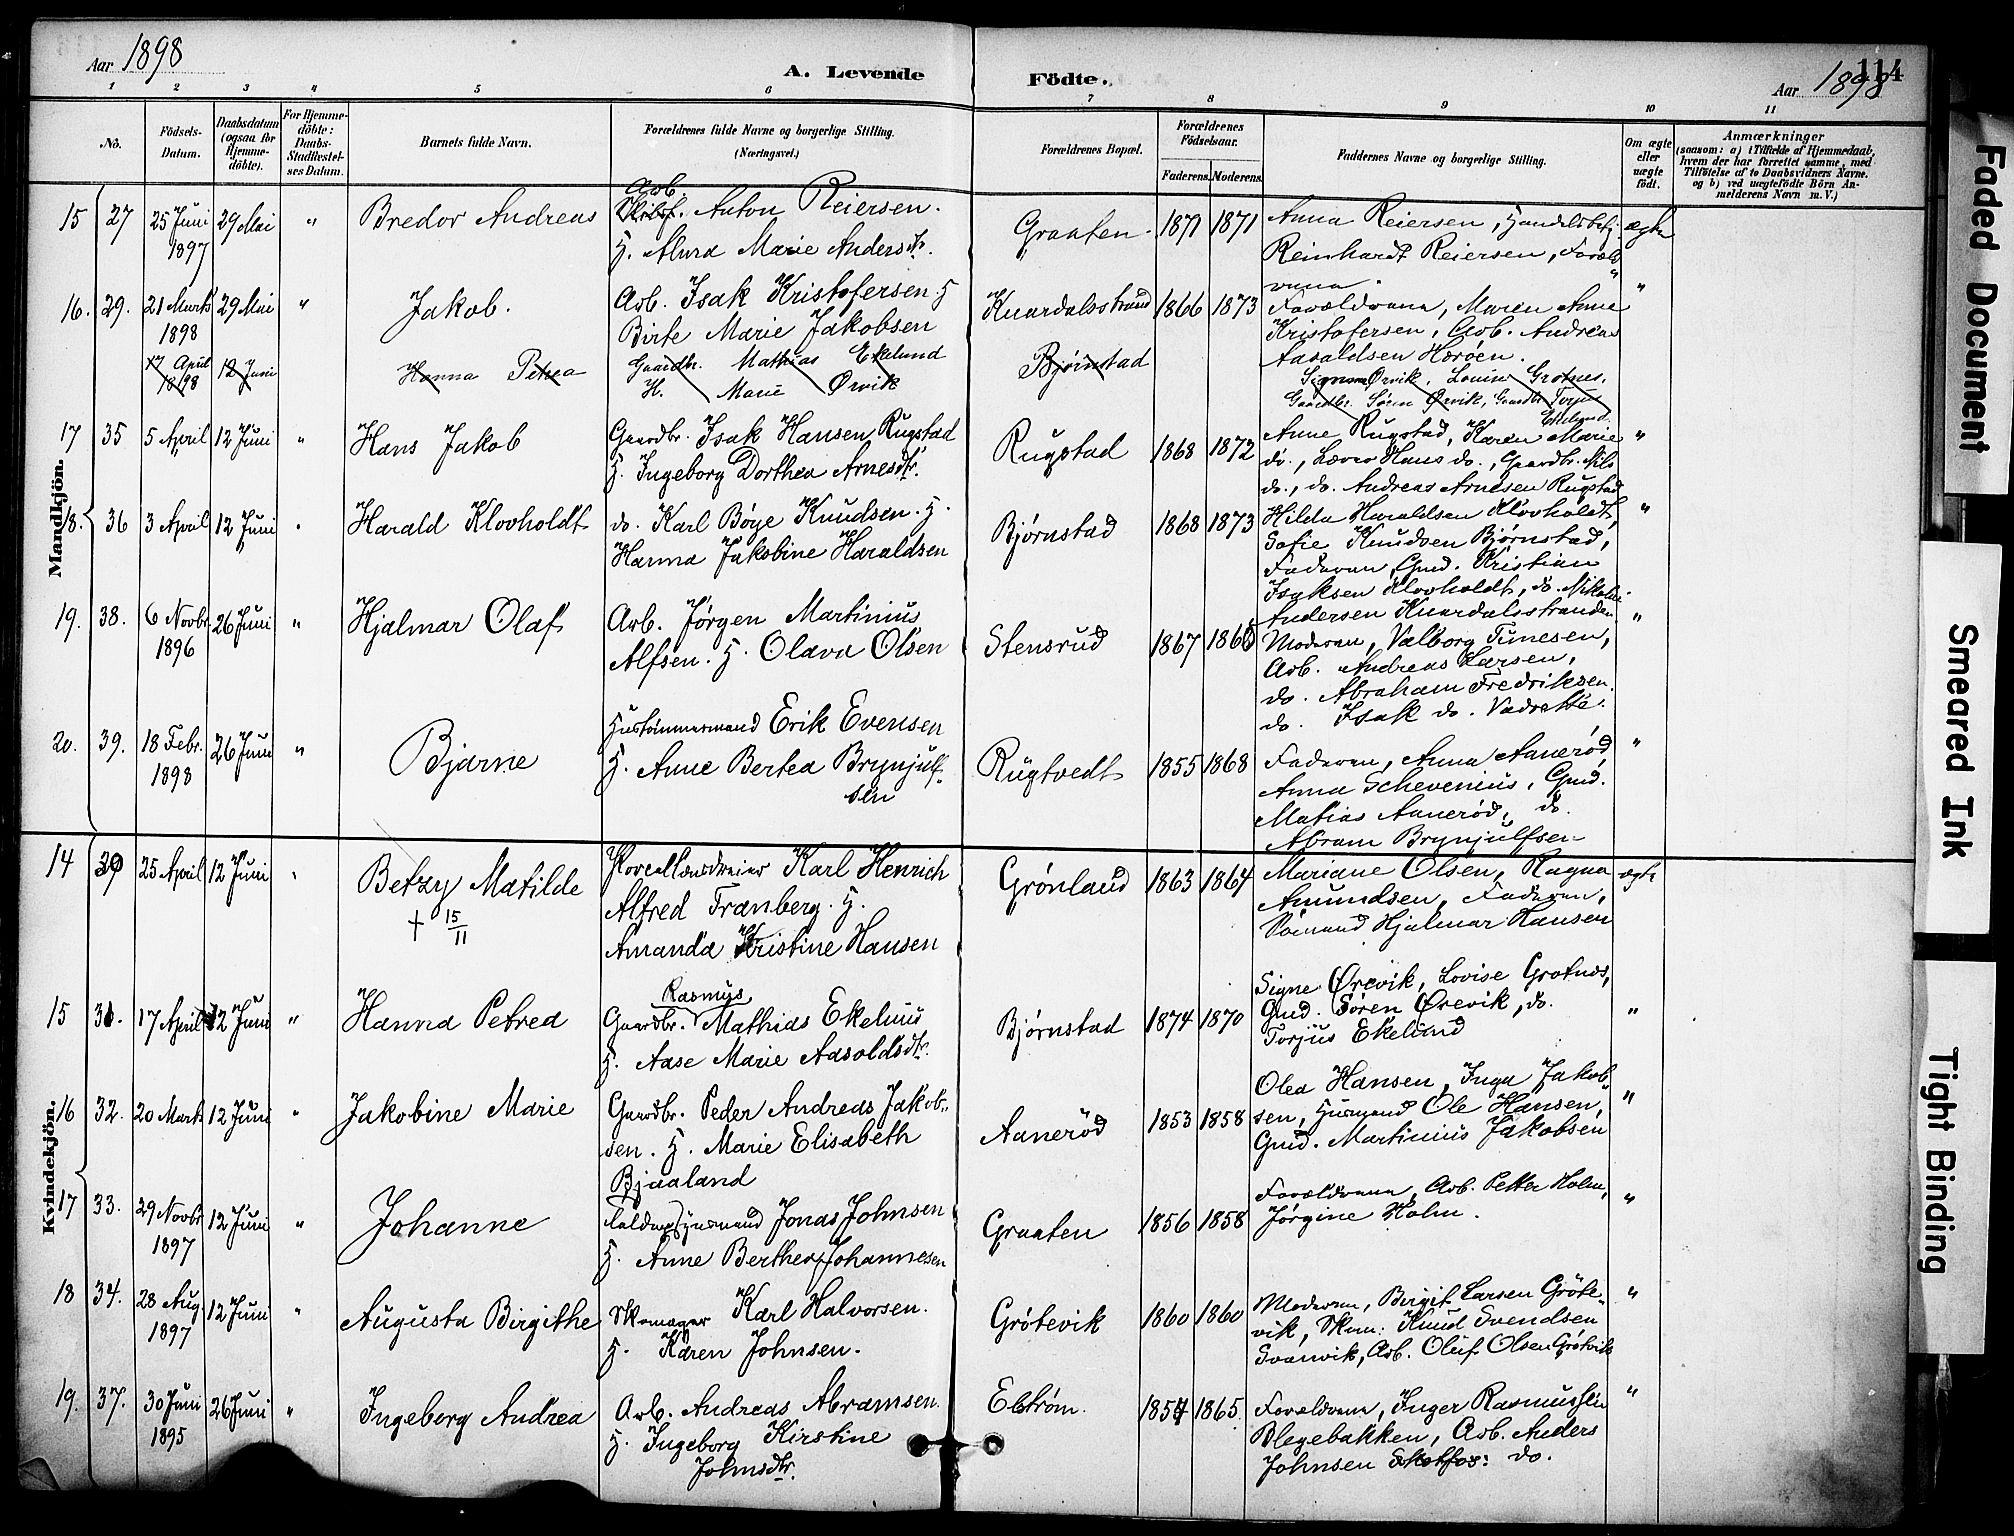 Aar 1898
A. Levende Födte.
Aar 1898
114
1 2 3 4 5 6 7 8 9 10 11
No.
Födsels-
Datum.
Daabsdatum
(ogsaa for
Hjemme-
döbte).
For Hjemme-
döbte:
Daabs-
Stadfæstel-
ses Datum.
Barnets fulde Navn.
Forældrenes fulde Navne og borgerlige Stilling.
(Næringsvei.)
Forældrenes Bopæl.
Forældrenes
Födselsaar.
Faderens. Moderens.
Faddernes Navne og borgerlige Stilling.
Om ægte
eller
uægte
födt.
Anmærkninger
(saasom: a) i Tilfælde af Hjemmedaab,
hvem der har forrettet samme, med
Tilföielse af to Daabsvidners Navne.
og b) ved uægtefödte Börn An-
melderens Navn m. V.)
Mandkjön.
15 27 25 Juni 29 Mai " Bredor Andreas
1897
Arb.
Anton Reiersen.
H. Alvra Marie Andersdtr.
Graaten. 1871 1871
Anna Reiersen, Handelsbetj. ægte
Reinhardt Reiersen, Foræld
rene.
16. 29. 21 Marts 29 Mai " Jakob.
1898
Arb. Isak Kristofersen. H
Birte Marie Jakobsen
Knardalsstrand 1866 1873
Forældrene, Maren Anne "
Kristofersen, Arb. Andreas
Aasoldsen Herøen.
17 April 12 Juni Hanna Petrea
1898
Gaardbr. Mathias Ekelund
H. Marie Ørvik
Bjørnstad
Signe Ørvik, Louise Grotnes,
Gaardbr. Søren Ørvik, Gaardbr. Torjus
Ekelund.
17 35 5 April 12 Juni " Hans Jakob
Gaardbr. Isak Hansen Rugstad
H. Ingeborg Dorthea Arnesdtr.
Rugstad 1868 1872
Anne Rugstad, Karen Marie "
do., Lærer Hans do., Gaardbr. Nils
do., do. Andreas Arnesen Rugstad
18. 36 3 April 12 Juni " Harald Klovholdt
do. Karl Böye Knudsen. H.
Hanna Jakobine Haraldsen
Bjørnstad 1868 1873
Hilda Haraldsen Klovholdt, "
Sofie Knudsen Bjørnstad,
Faderen, Gmd. Kristian
Isaksen Klovholdt, do. Nikolai
Andersen Knardalsstranden
19. 38. 6 Novbr 26 Juni " Hjalmar Olaf
1896
Arb. Jørgen Martinius
Alfsen. H. Olava Olsen
Stensrud 1867 1866
Moderen, Valborg Tunesen, "
Arb. Andreas Larsen,
do. Abraham Fredriksen.
do. Isak do. Vadrette.
20. 39. 18 Febr. 26 Juni " Bjarne
1898
Hustømmermand Erik Evensen
H. Anne Bertea Brynjulf-
sen
Rugtvedt 1855 1868
Faderen, Anna Aanerød, "
Anna Schevenius, Gmd.
Matias Aanerød, do.
Abram Brynjulfsen
Kvindekjön.
14 30 25 April 12 Juni " Betzy Matilde
† 15/11
Porcellænsdreier Karl Henrich
Alfred Tranberg. H.
Amanda Kristine Hansen
Grønland 1863 1864
Mariane Olsen, Ragna ægte
Amundsen, Faderen,
Sömand Hjalmar Hansen
15 31. 17 April 12 Juni " Hanna Petrea
Rasmus
Gaardbr. Mathias Ekelund
H. Aase Marie Aasoldsdtr.
Bjørnstad 1874 1870
Signe Ørevik, Lovise Grotnes,
Gmd. Søren Ørevik, do. "
Torjus Ekelund
16 32. 20 Marts 12 Juni " Jakobine Marie
Gaardbr. Peder Andreas Jakob-
sen. H. Marie Elisabeth
Bjaaland
Aanerød 1853 1858
Olea Hansen, Inga Jakob
sen, Husmand Ole Hansen, "
Gmd. Martinius Jakobsen
17 33. 29 Novbr 12 Juni " Johanne
1897
Husmand Jonas Johnsen
H. Anne Berthea Johannesen
Graaten 1856 1858
Forældrene, Arb. Petter Holm, "
Jørgine Holm.
18 34. 28 Aug. 12 Juni " Augusta Birgithe
1897
Skomager Karl Halvorsen.
H. Karen Johnsen.
Grötevik 1860 1860
Moderen, Birgit Larsen Gröte- "
vik, Skom. Knud Svendsen
Svanvik, Arb. Oluf Olsen Grötvik
19. 37. 30 Juni 26 Juni " Ingeborg Andrea
1895
Arb. Andreas Abramsen.
H. Ingeborg Kirstine
Johnsdtr.
Elstrøm. 1857 1865.
Forældrene, Inger Rasmussen "
Blegebakken, Arb. Anders
Johnsen Skotfos. do.
Faded Document
Smeared Ink
Tight Binding